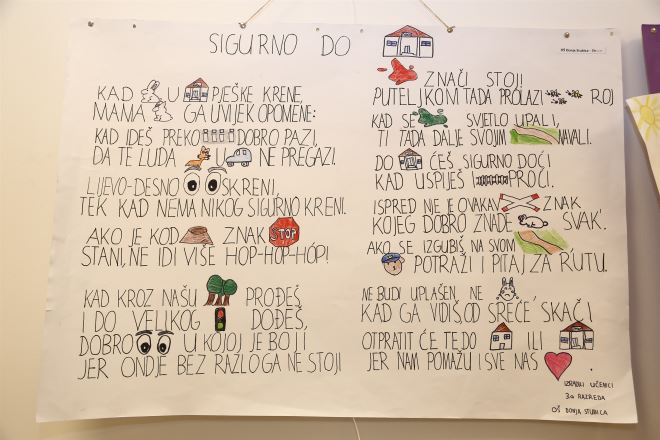 SIGURNO DO
OŠ Donja Stubica
KAD U PJEŠKE KRENE,
MAMA GA UVIJEK OPOMENE:
KAD IDEŠ PREKO DOBRO PAZI,
DA TE LUDA U NE PREGAZI.
LIJEVO-DESNO SKRENI,
TEK KAD NEMA NIKOG SIGURNO KRENI.
AKO JE KOD ZNAK STOP
STANI, NE IDI VIŠE HOP-HOP-HOP!
KAD KROZ NAŠU PROĐEŠ
I DO VELIKOG DOĐEŠ,
DOBRO U KOJOJ JE BOJI
JER ONDJE BEZ RAZLOGA NE STOJI
ZNAČI STOJ!
PUTELJKOM TADA PROLAZI ROJ
KAD SE SVJETLO UPALI,
TI TADA DALJE SVOJIM NAVALI.
DO ĆEŠ SIGURNO DOĆI
KAD USPIJEŠ PROĆI.
ISPRED NJE JE OVAKAV ZNAK
KOJEG DOBRO ZNADE SVAK.
AKO SE IZGUBIŠ NA SVOM
POTRAŽI I PITAJ ZA RUTU.
NE BUDI UPLAŠEN, NE ,
KAD GA VIDIŠ, OD SREĆE SKAČI
OTPRATIT ĆE TE DO ILI .
JER NAM POMAŽU I SVE NAS .
IZRADILI UČENICI
3.a RAZREDA
OŠ DONJA STUBICA